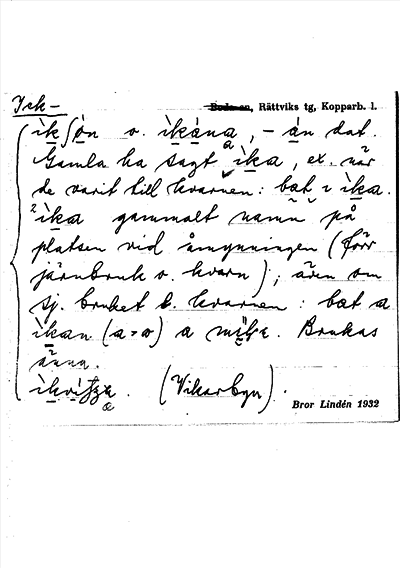 Ick-
Boda sn, Rättviks tg, Kopparb. l.
ìkʃȯn o. ìkȧna, -ȧn dat.
Gamla ha sagt ìka, ex. när
de varit till kvarnen: bæt ı ìka.
²ìka gammalt namn på
platsen vid åmynningen (förr
järnbruk o. kvarn); även om
sj. bruket l. kvarnen: bæt a
ìkan (a=o) a Brukas
ännu.
(Vikarbyn).
Bror Lindén 1932